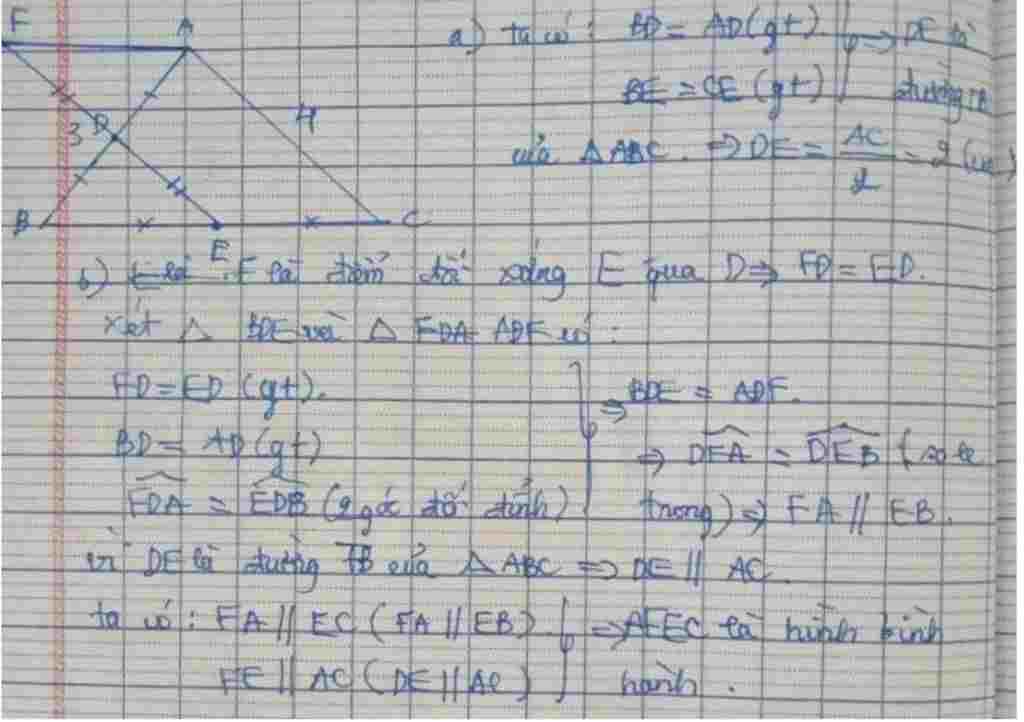 F A
a) ta có: BD = AD (gt) ⇒ DE là
BE = CE (gt) đường TB
4
3 D
của △ ABC. ⇒ DE = AC/2 = 2 (cm)
B E C
b) F là điểm đối xứng E qua D ⇒ FD = ED.
xét △ BDE và △ ADF có:
FD = ED (gt).
⇒ BDE = ADF.
BD = AD (gt)
⇒ DEA = DEB (so le
FDA = EDB (2 góc đối đỉnh)
trong) ⇒ FA // EB.
vì DE là đường TB của △ ABC ⇒ DE // AC.
ta có: FA // EC (FA // EB) ⇒ AFEC là hình bình
FE // AC (DE // AC) hành.